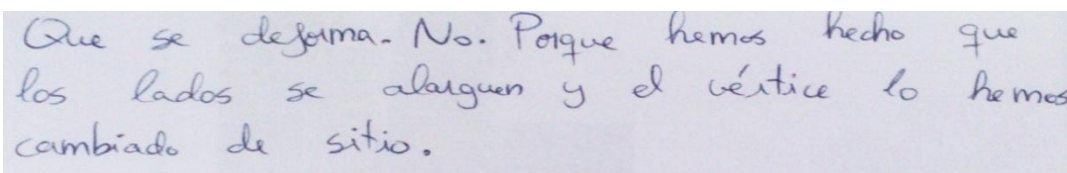 Que se deforma. No. Porque hemos hecho que
los lados se alarguen y el vértice lo hemos
cambiado de sitio.